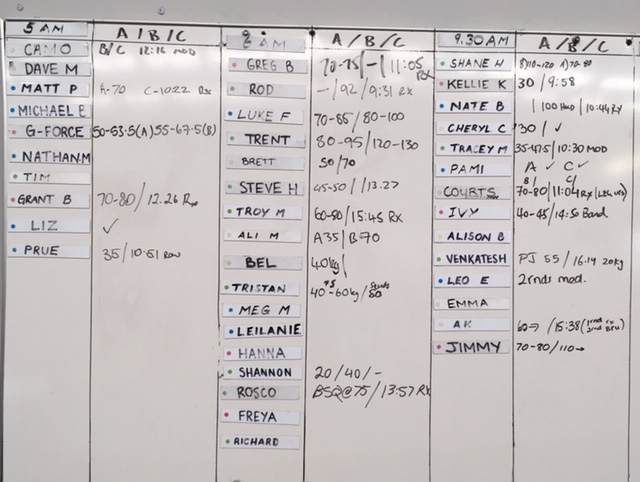 5 AM A/B/C
CAMO B/C 12:16 MOD
DAVE M
MATT P A-70 C-10:22 Rx
MICHAEL B
G-FORCE 50-53.5(A) 55-67.5(B)
NATHAN M
TIM
GRANT B 70-80/12.26 Rx
LIZ ✓
PRUE 35/10:51 Row
AM A/B/C
GREG B 70-75/-/11:05 Rx
ROD -/92/9:31 Rx
LUKE F 70-85/80-100
TRENT 80-95/120-130
BRETT 50/70
STEVE H 45-50//13.27
TROY M 60-80/15:45 Rx
ALI M A35/B70
BEL 40kg/
TRISTAN 40-60kg/50
MEG M
LEILANIE
HANNA
SHANNON 20/40/-
ROSCO BSQ@75/13:57 Rx
FREYA
RICHARD
9.30 AM A/B/C
SHANE H B)110-120 A)70-80
KELLIE K 30/9:58
NATE B /100 /10:44 RX
CHERYL C 30/✓
TRACEY M 35-47.5/10:30 MOD
PAM I A ✓ C ✓
COURTS 70-80/11:04 RX
IVY 40-45/14:50 Band
ALISON B
VENKATESH PJ 55/16.14 20kg
LEO E 2rnds mod.
EMMA
AK 60→/15:38
JIMMY 70-80/110→